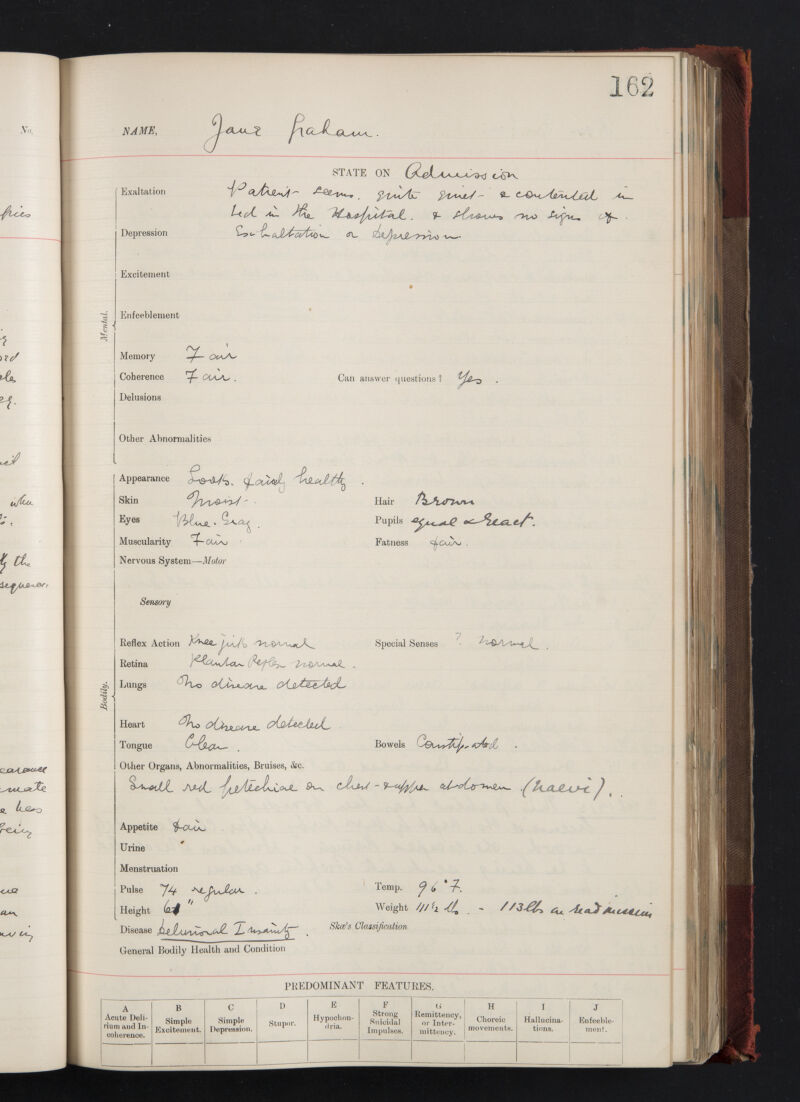 162
No.
NAME, Jane Graham.
STATE ON Admission
Exaltation Patient seems quite quiet & contented in
bed in the Hospital. & shows no signs of
Depression Exhaltation or depression
Excitement
Enfeeblement
Mental.
Memory Fair
Coherence Fair. Can answer questions? Yes.
Delusions
Other Abnormalities
Appearance Looks fairly healthy.
Skin Moist. Hair Brown
Eyes Blue-Gray. Pupils equal & react.
Muscularity Fair. Fatness fair.
Nervous System—Motor
Sensory
Reflex Action Knee jerks normal Special Senses ? normal.
Retina Plantar Reflex normal.
Bodily.
Lungs No disease detected
Heart No disease detected
Tongue Clean. Bowels Constipated.
Other Organs, Abnormalities, Bruises, &c.
Small red petechiae on chest & upper abdomen (naevi).
Appetite Fair
Urine
Menstruation
Pulse 74 regular. Temp. 96°F.
Height 61" Weight 111½ lbs. - 113lbs on readmission
Disease Delusional Insanity. Skae's Classification
General Bodily Health and Condition
PREDOMINANT FEATURES.
A Acute Delirium and Incoherence.
B Simple Excitement.
C Simple Depression.
D Stupor.
E Hypochondria.
F Strong Suicidal Impulses.
G Remittency, or Intermittency.
H Choreic movements.
I Hallucinations.
J Enfeeblement.